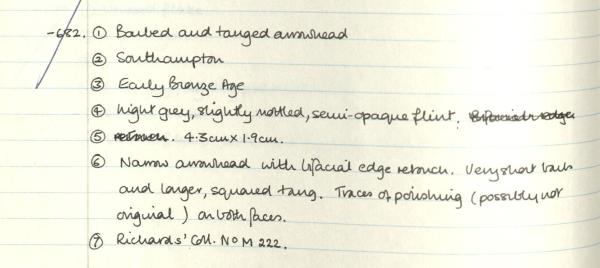 -682. ① Barbed and tanged arrowhead
② Southampton
③ Early Bronze Age
④ Light grey, slightly mottled, semi-opaque flint. Bifacial edge
⑤ retouch. 4.3cm x 1.9cm.
⑥ Narrow arrowhead with bifacial edge retouch. Very short barbs
and longer, squared tang. Traces of polishing (possibly not
original) on both faces.
⑦ Richards' Coll. No M 222.